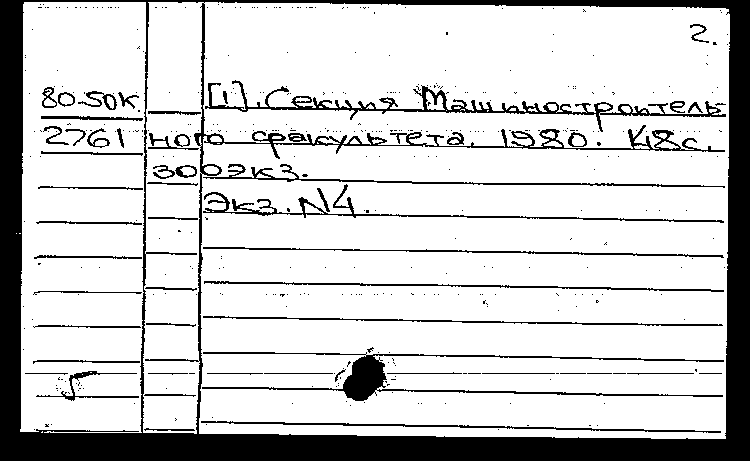 2.
80-50к [1]. Секция Машиностроитель
2761 ного факультета. 1980. 48с.
300экз.
Экз. N4.